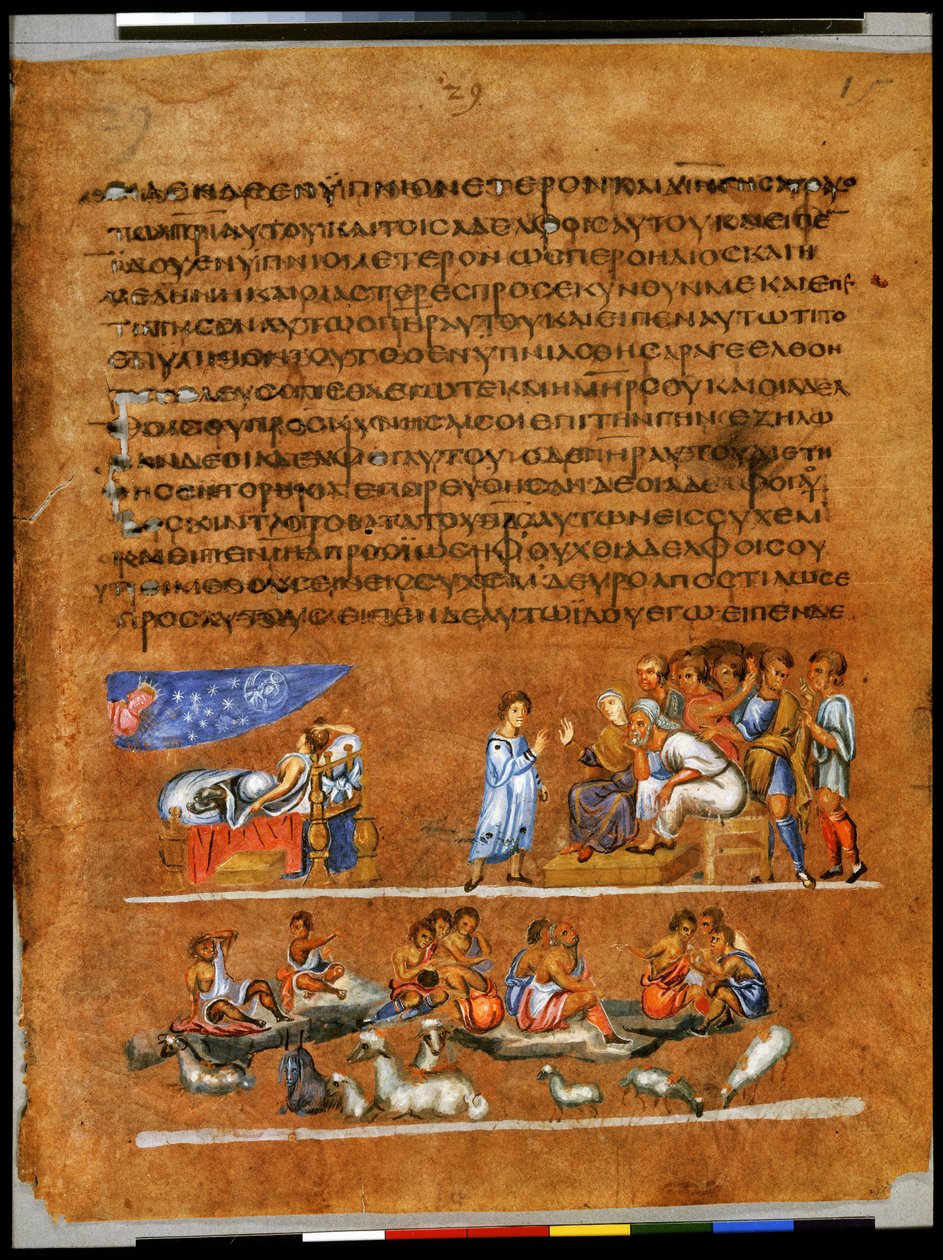 29
15
ΕΙΔΕΝΔΕΕΝΫΠΝΙΟΝΕΤΕΡΟΝΚΑΙΔΙΗΓΗϹΑΤΟΑΥ
ΤΩΠΡΙΑΥΤΟΥΚΑΙΤΟΙϹΑΔΕΛΦΟΙϹΑΥΤΟΥΚΑΙΕΙΠΕ
ΪΔΟΥΕΝΥΠΝΙΟΝΕΤΕΡΟΝΩϹΠΕΡΟΗΛΙΟϹΚΑΙΗ
ϹΕΛΗΝΗΚΑΙΟΙΑϹΤΕΡΕϹΠΡΟϹΕΚΥΝΟΥΝΜΕΚΑΙΕΠΕ
ΤΙΜΗϹΕΝΑΥΤΩΟΠΗΡΑΥΤΟΥΚΑΙΕΙΠΕΝΑΥΤΩΤΙΤΟ
ΕΝΥΠΝΙΟΝΤΟΥΤΟΟΕΝΥΠΝΙΑϹΘΗϹΑΡΑΓΕΕΛΘΟΝ
ΤΕϹΕΛΕΥϹΟΜΕΘΑΕΓΩΤΕΚΑΙΗΜΗΡϹΟΥΚΑΙΟΙΑΔΕΛ
ΦΟΙϹΟΥΠΡΟϹΚΥΝΗϹΑΙϹΟΙΕΠΙΤΗΝΓΗΝΕΖΗΛΩ
ϹΑΝΔΕΟΙΑΔΕΛΦΟΙΑΥΤΟΥΟΔΕΠΗΡΑΥΤΟΥΔΙΕΤΗ
ΡΗϹΕΝΤΟΡΗΜΑΕΠΟΡΕΥΘΗϹΑΝΔΕΟΙΑΔΕΛΦΟΙΑΥ
ΒΟϹΚΙΝΤΑΠΡΟΒΑΤΑΤΟΥΠΡϹΑΥΤΩΝΕΙϹϹΥΧΕΜ
ΚΑΙΕΙΠΕΝΙΗΛΠΡΟϹΪΩϹΗΦΟΥΧΟΙΑΔΕΛΦΟΙϹΟΥ
ΠΟΙΜΕΝΟΥϹΕΙΝΕΙϹϹΥΧΕΜΔΕΥΡΟΑΠΟϹΤΙΛΩϹΕ
ΠΡΟϹΑΥΤΟΥϹΕΙΠΕΝΔΕΑΥΤΩΪΔΟΥΕΓΩΕΙΠΕΝΔΕ